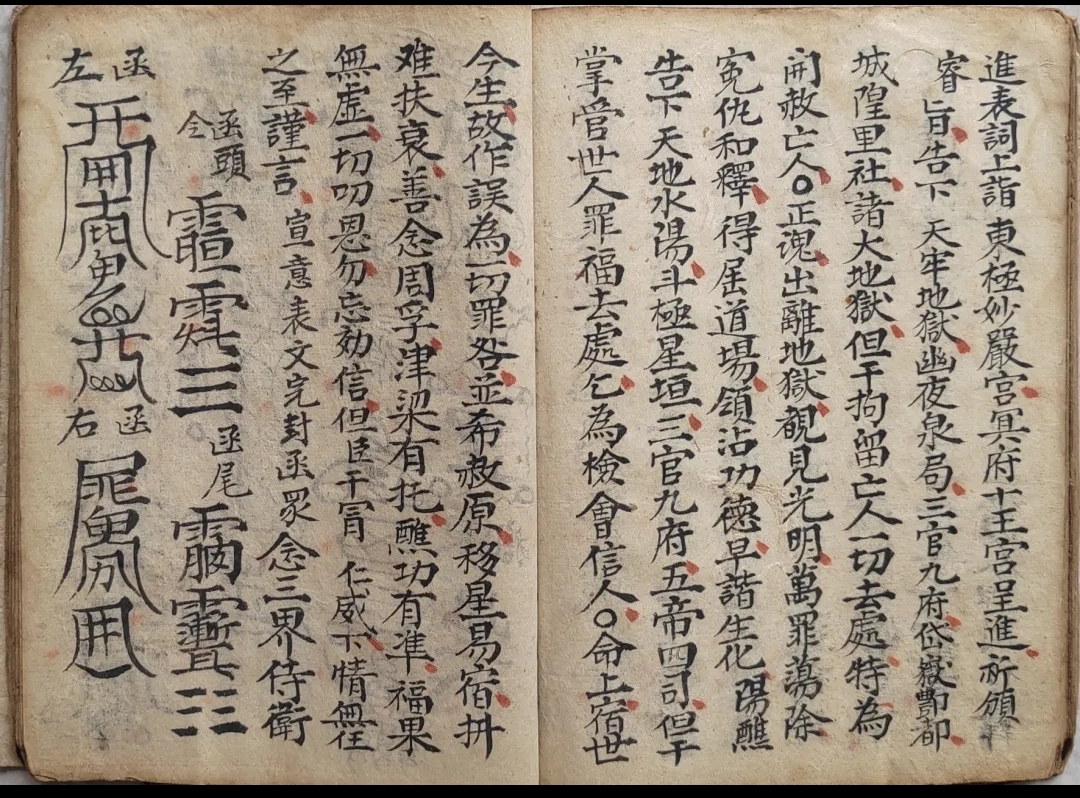 進表詞上詣 東極妙嚴宮冥府十王宮呈進祈頒
睿旨告下 天牢地獄幽夜泉局三官九府岱嶽酆都
城隍里社諸大地獄但干拘留亡人一切去處特為
開赦亡人〇正魂出離地獄觀見光明萬罪蕩除
冤仇和釋得屆道場領沾功德早諧生化 陽醮
告下天地水陽斗極星垣三官九府五帝四司但干
掌管世人罪福去處乞為檢會信人〇命上宿世
今生故作誤為一切罪咎並希赦原移星易宿拼
难扶衰善念周孚津梁有托醮功有準 福果
無虛一切叨恩勿忘効信但臣干冒 仁威下情無任
之至謹言 宣意表文完封函眾念三界侍衛
函頭 函尾
今
函 函
左 右